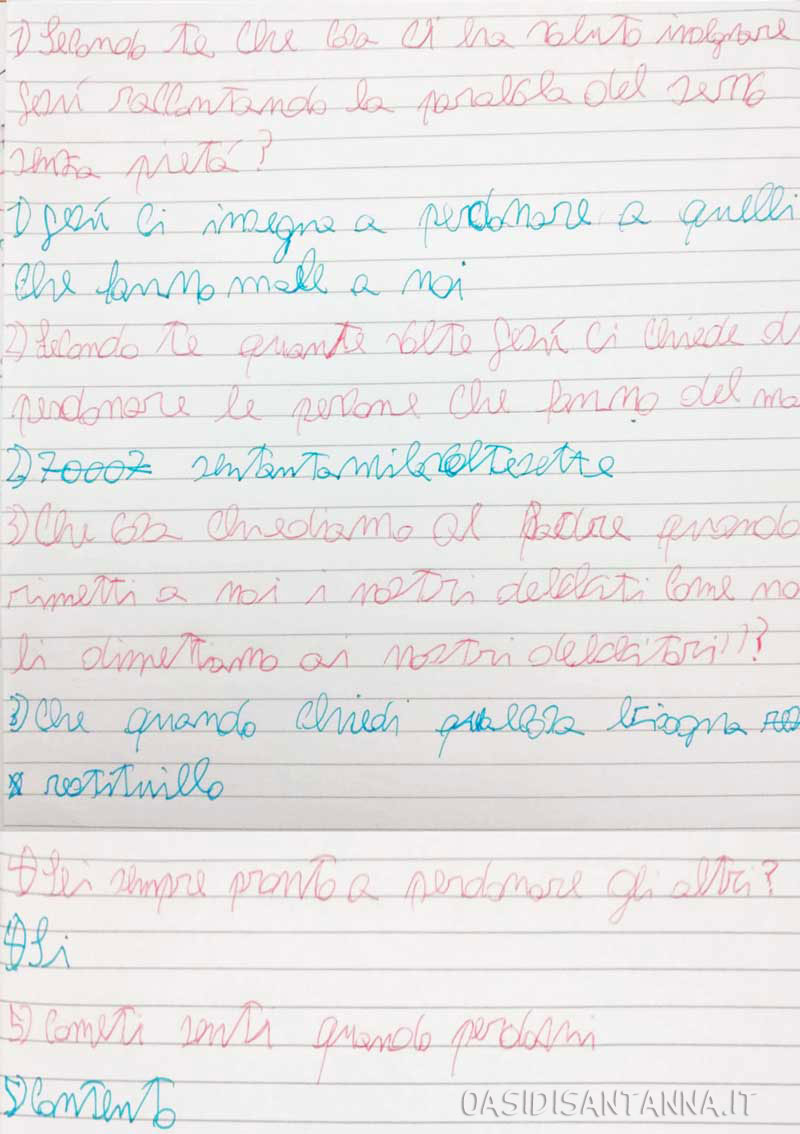 1) Secondo te che cosa ci ha voluto insegnare
Gesú raccontando la parabola del servo
senza pietá?
1) Gesú ci insegna a perdonare a quelli
che fanno male a noi
2) Secondo te quante volte Gesú ci chiede d
perdonare le persone che fanno del ma
2) 70007 sentantamilavoltesette
3) Che cosa chiediamo al Padre quando
rimetti a noi i nostri debbiti come no
li dimettiamo ai nostri debbitori))?
3) Che quando chiedi qualcosa bisogna
restituillo
4) Sei sempre pronto a perdonare gli altri?
4) Si
5) Come ti senti quando perdoni
5) Contento
OASIDISANTANNA.IT